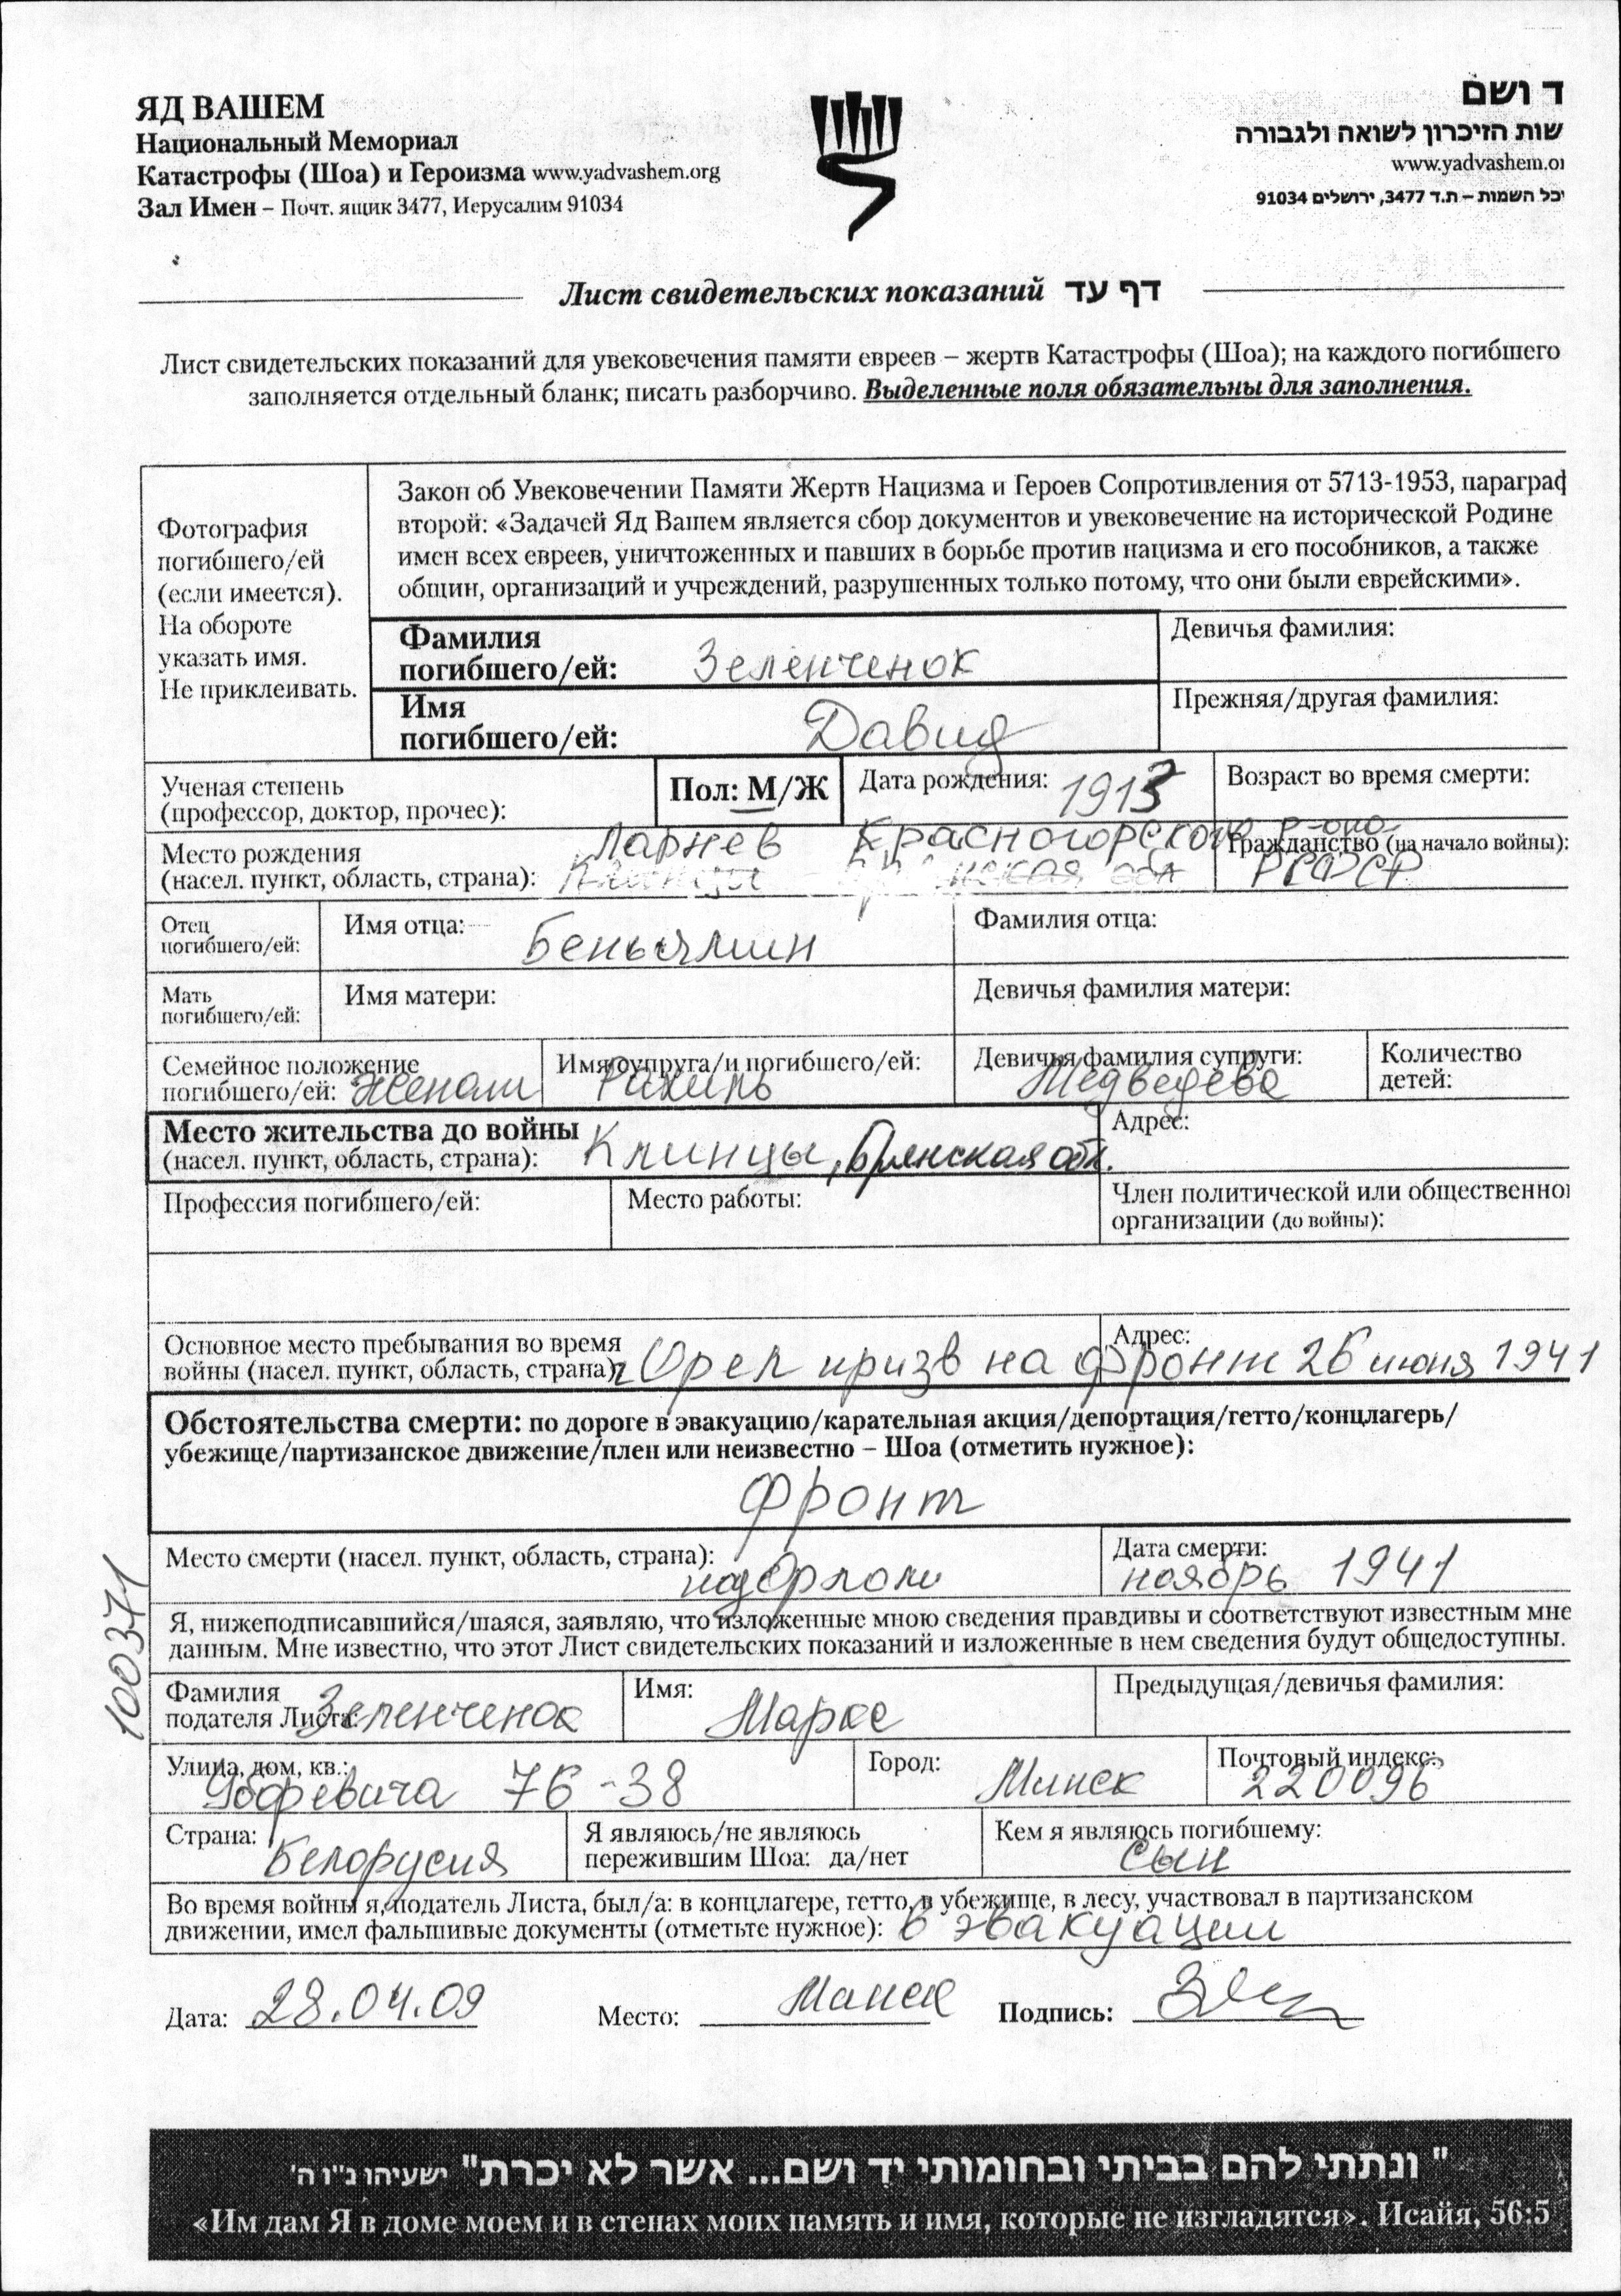 ЯД ВАШЕМ
Национальный Мемориал
Катастрофы (Шоа) и Героизма www.yadvashem.org
Зал Имен – Почт. ящик 3477, Иерусалим 91034
ד ושם
שות הזיכרון לשואה ולגבורה
www.yadvashem.or
יכל השמות – ת.ד 3477, ירושלים 91034
Лист свидетельских показаний דף עד
Лист свидетельских показаний для увековечения памяти евреев – жертв Катастрофы (Шоа); на каждого погибшего
заполняется отдельный бланк; писать разборчиво. Выделенные поля обязательны для заполнения.
Фотография
погибшего/ей
(если имеется).
На обороте
указать имя.
Не приклеивать.
Закон об Увековечении Памяти Жертв Нацизма и Героев Сопротивления от 5713-1953, параграф
второй: «Задачей Яд Вашем является сбор документов и увековечение на исторической Родине
имен всех евреев, уничтоженных и павших в борьбе против нацизма и его пособников, а также
общин, организаций и учреждений, разрушенных только потому, что они были еврейскими».
Фамилия
погибшего/ей: Зеленченок
Девичья фамилия:
Имя
погибшего/ей: Давид
Прежняя/другая фамилия:
Ученая степень
(профессор, доктор, прочее):
Пол: М/Ж
Дата рождения: 1913
Возраст во время смерти:
Место рождения Ларнев Красногорского р-она
(насел. пункт, область, страна): Клинцы обл
Гражданство (на начало войны):
РСФСР
Отец
погибшего/ей:
Имя отца: Беньямин
Фамилия отца:
Мать
погибшего/ей:
Имя матери:
Девичья фамилия матери:
Семейное положение
погибшего/ей: Женат
Имя супруга/и погибшего/ей:
Рахиль
Девичья фамилия супруги:
Медведева
Количество
детей:
Место жительства до войны
(насел. пункт, область, страна): Клинцы, Брянская обл.
Адрес:
Профессия погибшего/ей:
Место работы:
Член политической или общественной
организации (до войны):
Основное место пребывания во время
войны (насел. пункт, область, страна): г Орел призв на фронт 26 июня 1941
Адрес:
Обстоятельства смерти: по дороге в эвакуацию/карательная акция/депортация/гетто/концлагерь/
убежище/партизанское движение/плен или неизвестно – Шоа (отметить нужное):
фронт
Место смерти (насел. пункт, область, страна):
под Орлом
Дата смерти:
ноябрь 1941
Я, нижеподписавшийся/шаяся, заявляю, что изложенные мною сведения правдивы и соответствуют известным мне
данным. Мне известно, что этот Лист свидетельских показаний и изложенные в нем сведения будут общедоступны.
100371
Фамилия
подателя Листа: Зеленченок
Имя: Маркс
Предыдущая/девичья фамилия:
Улица, дом, кв.:
Уборевича 76-38
Город: Минск
Почтовый индекс:
220096
Страна: Белорусия
Я являюсь/не являюсь
пережившим Шоа: да/нет
Кем я являюсь погибшему:
Сын
Во время войны я, податель Листа, был/а: в концлагере, гетто, в убежище, в лесу, участвовал в партизанском
движении, имел фальшивые документы (отметьте нужное): в эвакуации
Дата: 28.04.09 Место: Минск Подпись:
" ונתתי להם בביתי ובחומותי יד ושם... אשר לא יכרת" ישעיהו נ"ו ה'
«Им дам Я в доме моем и в стенах моих память и имя, которые не изгладятся». Исайя, 56:5